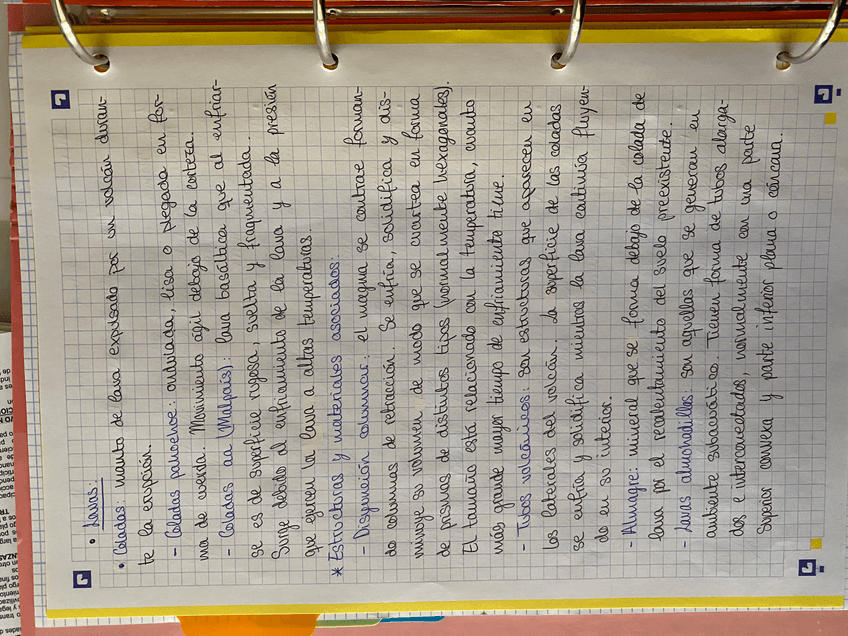 • Lavas:
• Coladas: manto de lava expulsado por un volcán duran-
te la erupción.
- Coladas pahoehoe: ondulada, lisa o plegada en for-
ma de cuerda. Movimiento ágil debajo de la corteza.
- Coladas aa (Malpaís): lava basáltica que al enfriar-
se es de superficie rugosa, suelta y fragmentada.
Surge debido al enfriamiento de la lava y a la presión
que ejercen la lava a altas temperaturas.
* Estructuras y materiales asociados:
- Disyunción columnar: el magma se contrae forman-
do columnas de retracción. Se enfría, solidifica y dis-
minuye su volumen de modo que se cuartea en forma
de prismas de distintos tipos (normalmente hexagonales).
El tamaño está relacionado con la temperatura, cuanto
más grande mayor tiempo de enfriamiento tiene.
- Tubos volcánicos: son estructuras que aparecen en
los laterales del volcán. La superficie de las coladas
se enfría y solidifica mientras la lava continúa fluyen-
do en su interior.
- Almagre: mineral que se forma debajo de la colada de
lava por el recalentamiento del suelo preexistente.
- Lavas almohadillas: son aquellas que se generan en
ambiente subacuático. Tienen forma de tubos alarga-
dos e interconectados, normalmente con una parte
superior convexa y parte inferior plana o cóncava.